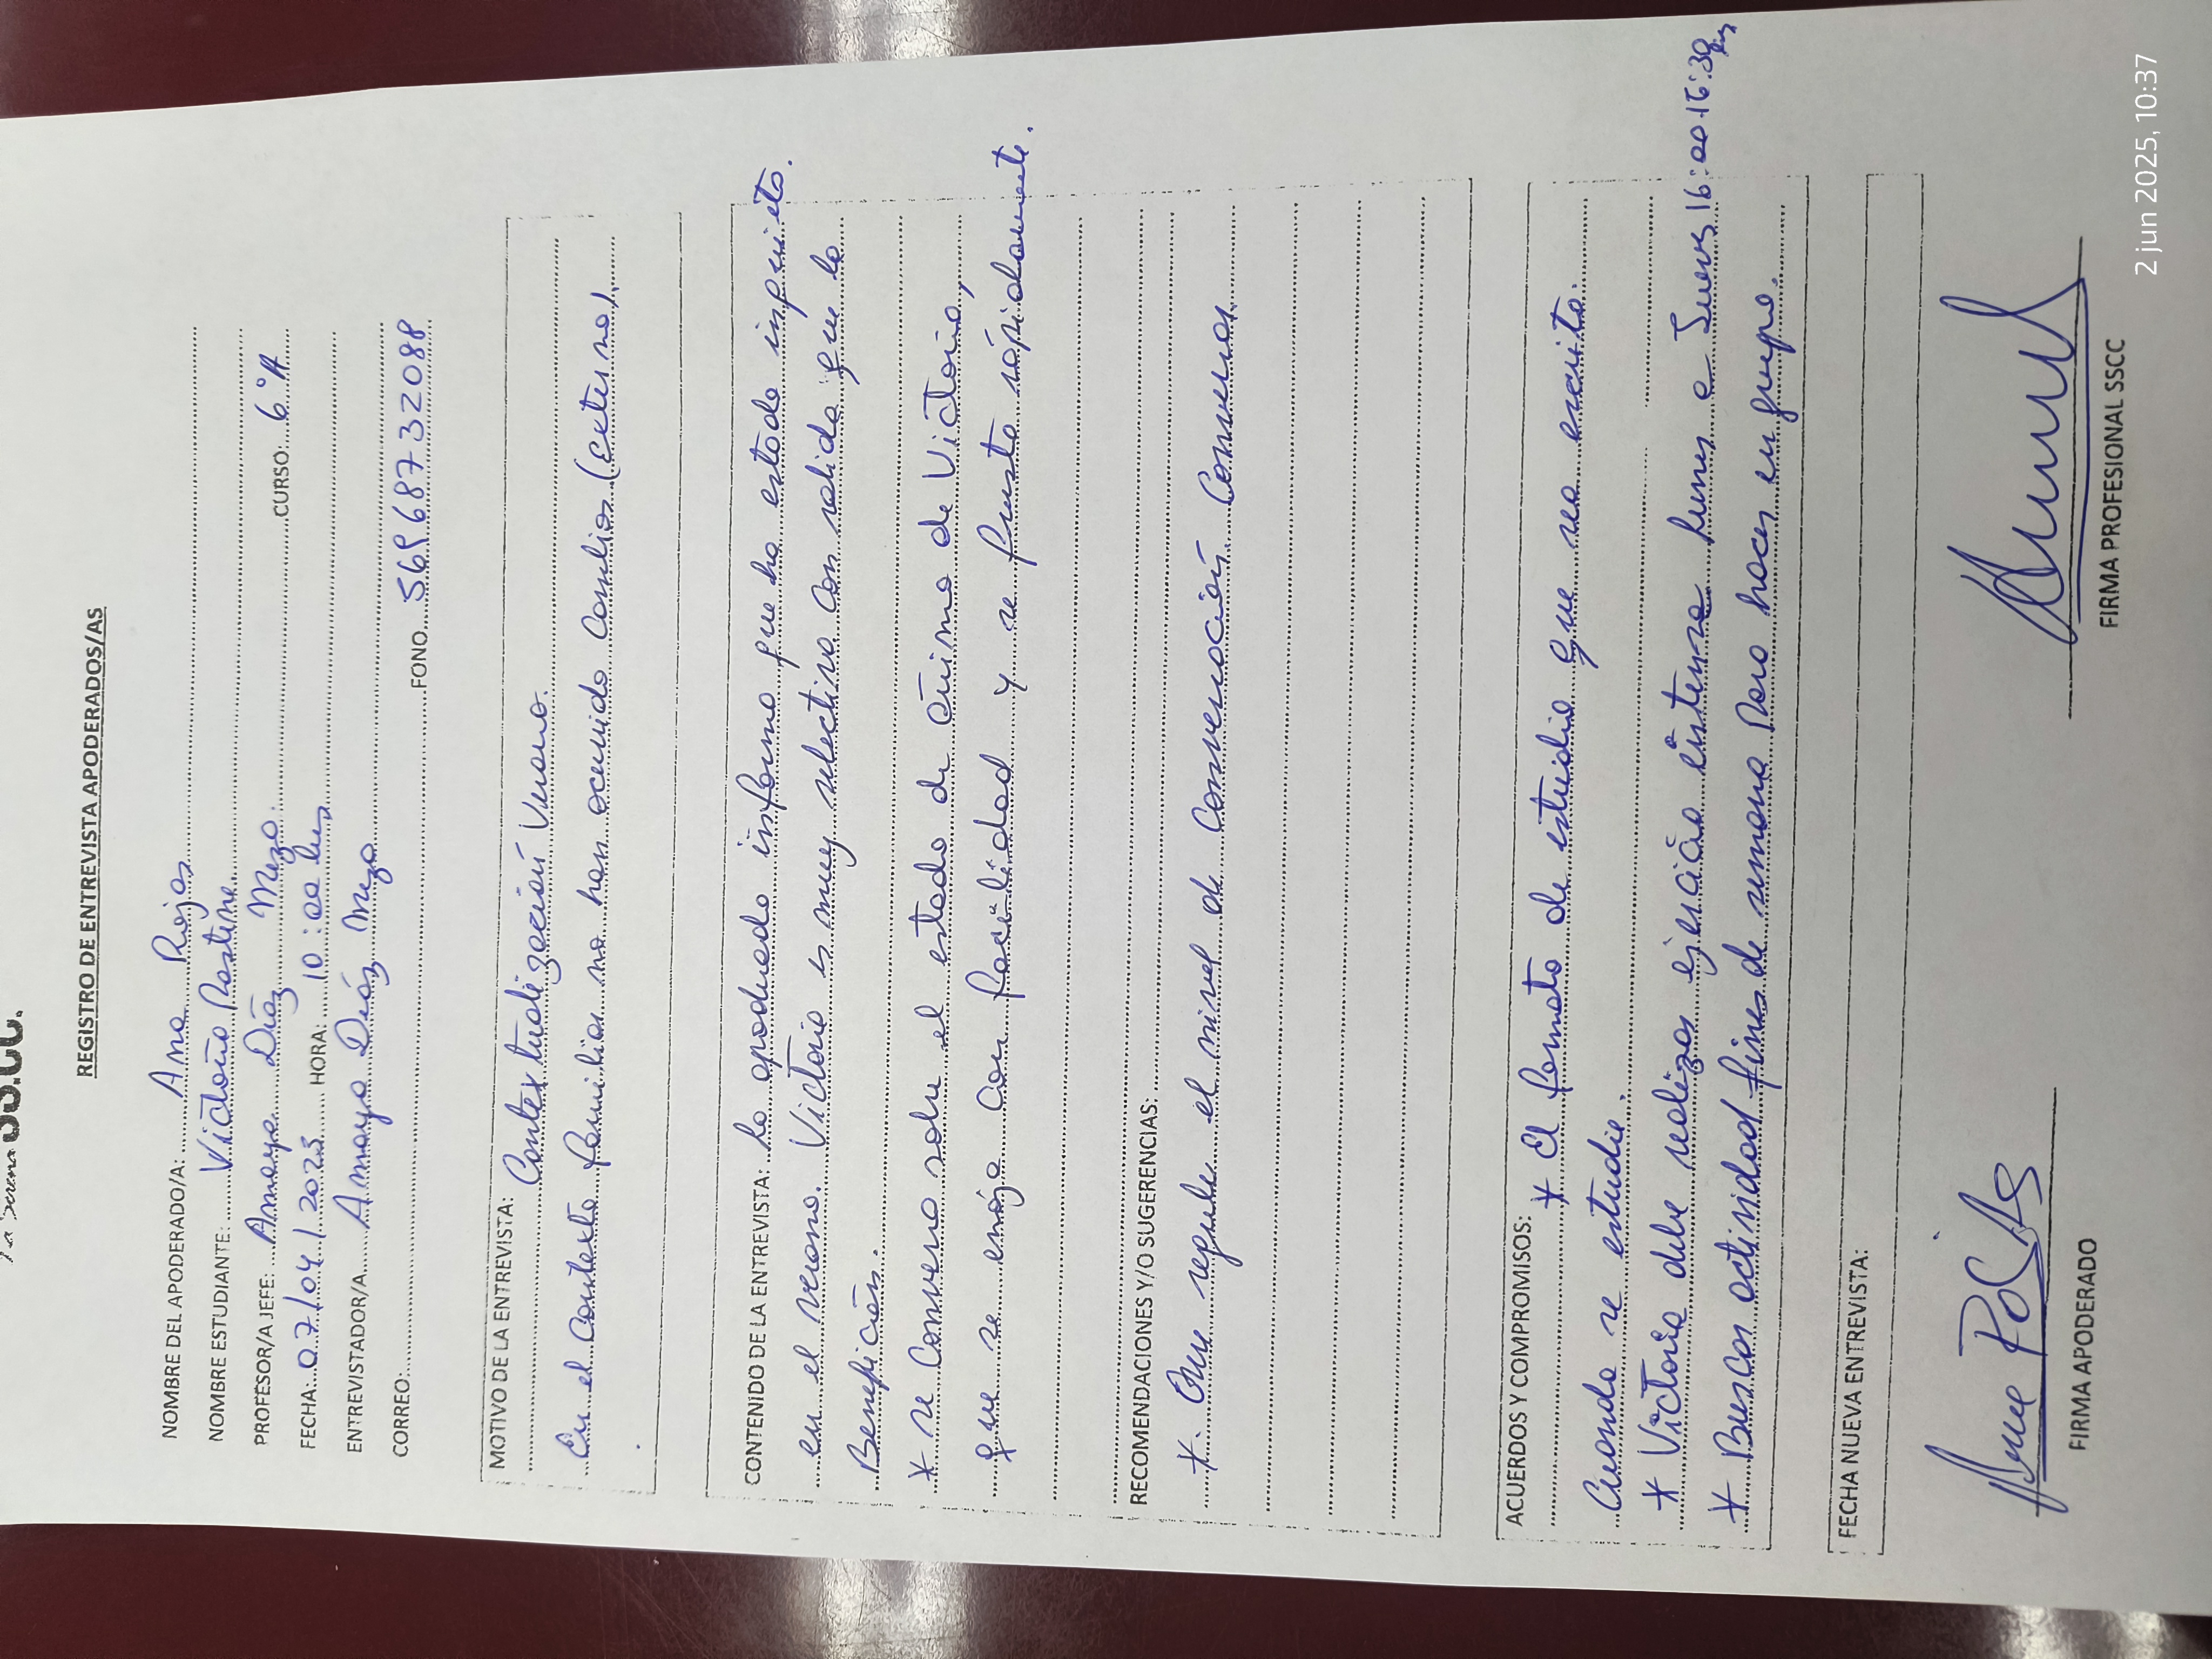 La Serena SS.CC.
REGISTRO DE ENTREVISTA APODERADOS/AS
NOMBRE DEL APODERADO/A: Ana Rojas
NOMBRE ESTUDIANTE: Victoria
PROFESOR/A JEFE: Amaya Díaz Meza. CURSO: 6°A
FECHA: 07/04/2025 HORA: 10:00 hrs
ENTREVISTADOR/A Amaya Díaz Meza
CORREO: FONO 569 68732088
MOTIVO DE LA ENTREVISTA: Contextualización Verano.
En el contexto familiar no han ocurrido cambios (externo).
CONTENIDO DE LA ENTREVISTA: La apoderada informa que ha estado inquieta
en el verano. Victoria es muy selectiva con salida que la
Benefician.
* se conversa sobre el estado de ánimo de Victoria,
que se enoja con facilidad y se frustra rápidamente.
RECOMENDACIONES Y/O SUGERENCIAS:
*. Que regule el nivel de conversación conversar.
ACUERDOS Y COMPROMISOS: * El formato de estudio que sea escrito.
Cuando se estudie.
* Victoria debe realizar ejercicio lunes e Jueves 16:00-16:30
* Buscar actividad fines de semana para hacer en grupo.
FECHA NUEVA ENTREVISTA:
Ana Rojas
FIRMA APODERADO
FIRMA PROFESIONAL SSCC
2 jun 2025, 10:37